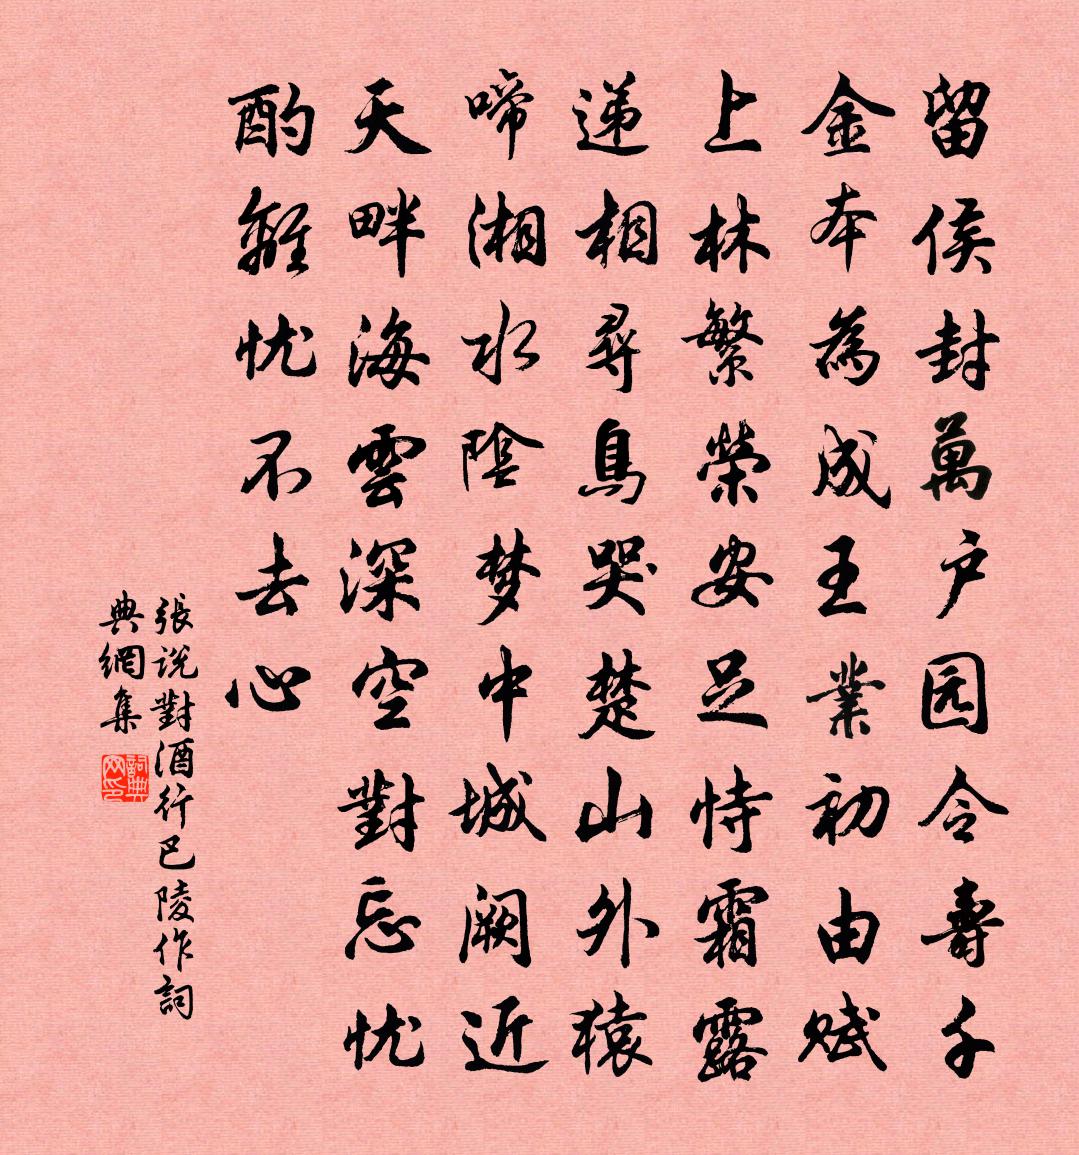 留侯封萬户园令壽千
金本為成王業初由賦
上林繁榮安足恃霜露
递相尋鳥哭楚山外猿
啼湘水陰梦中城阙近
天畔海雲深空對忘忧
酌離忧不去心
張说對酒行巴陵作詞
典網集
詞典网印